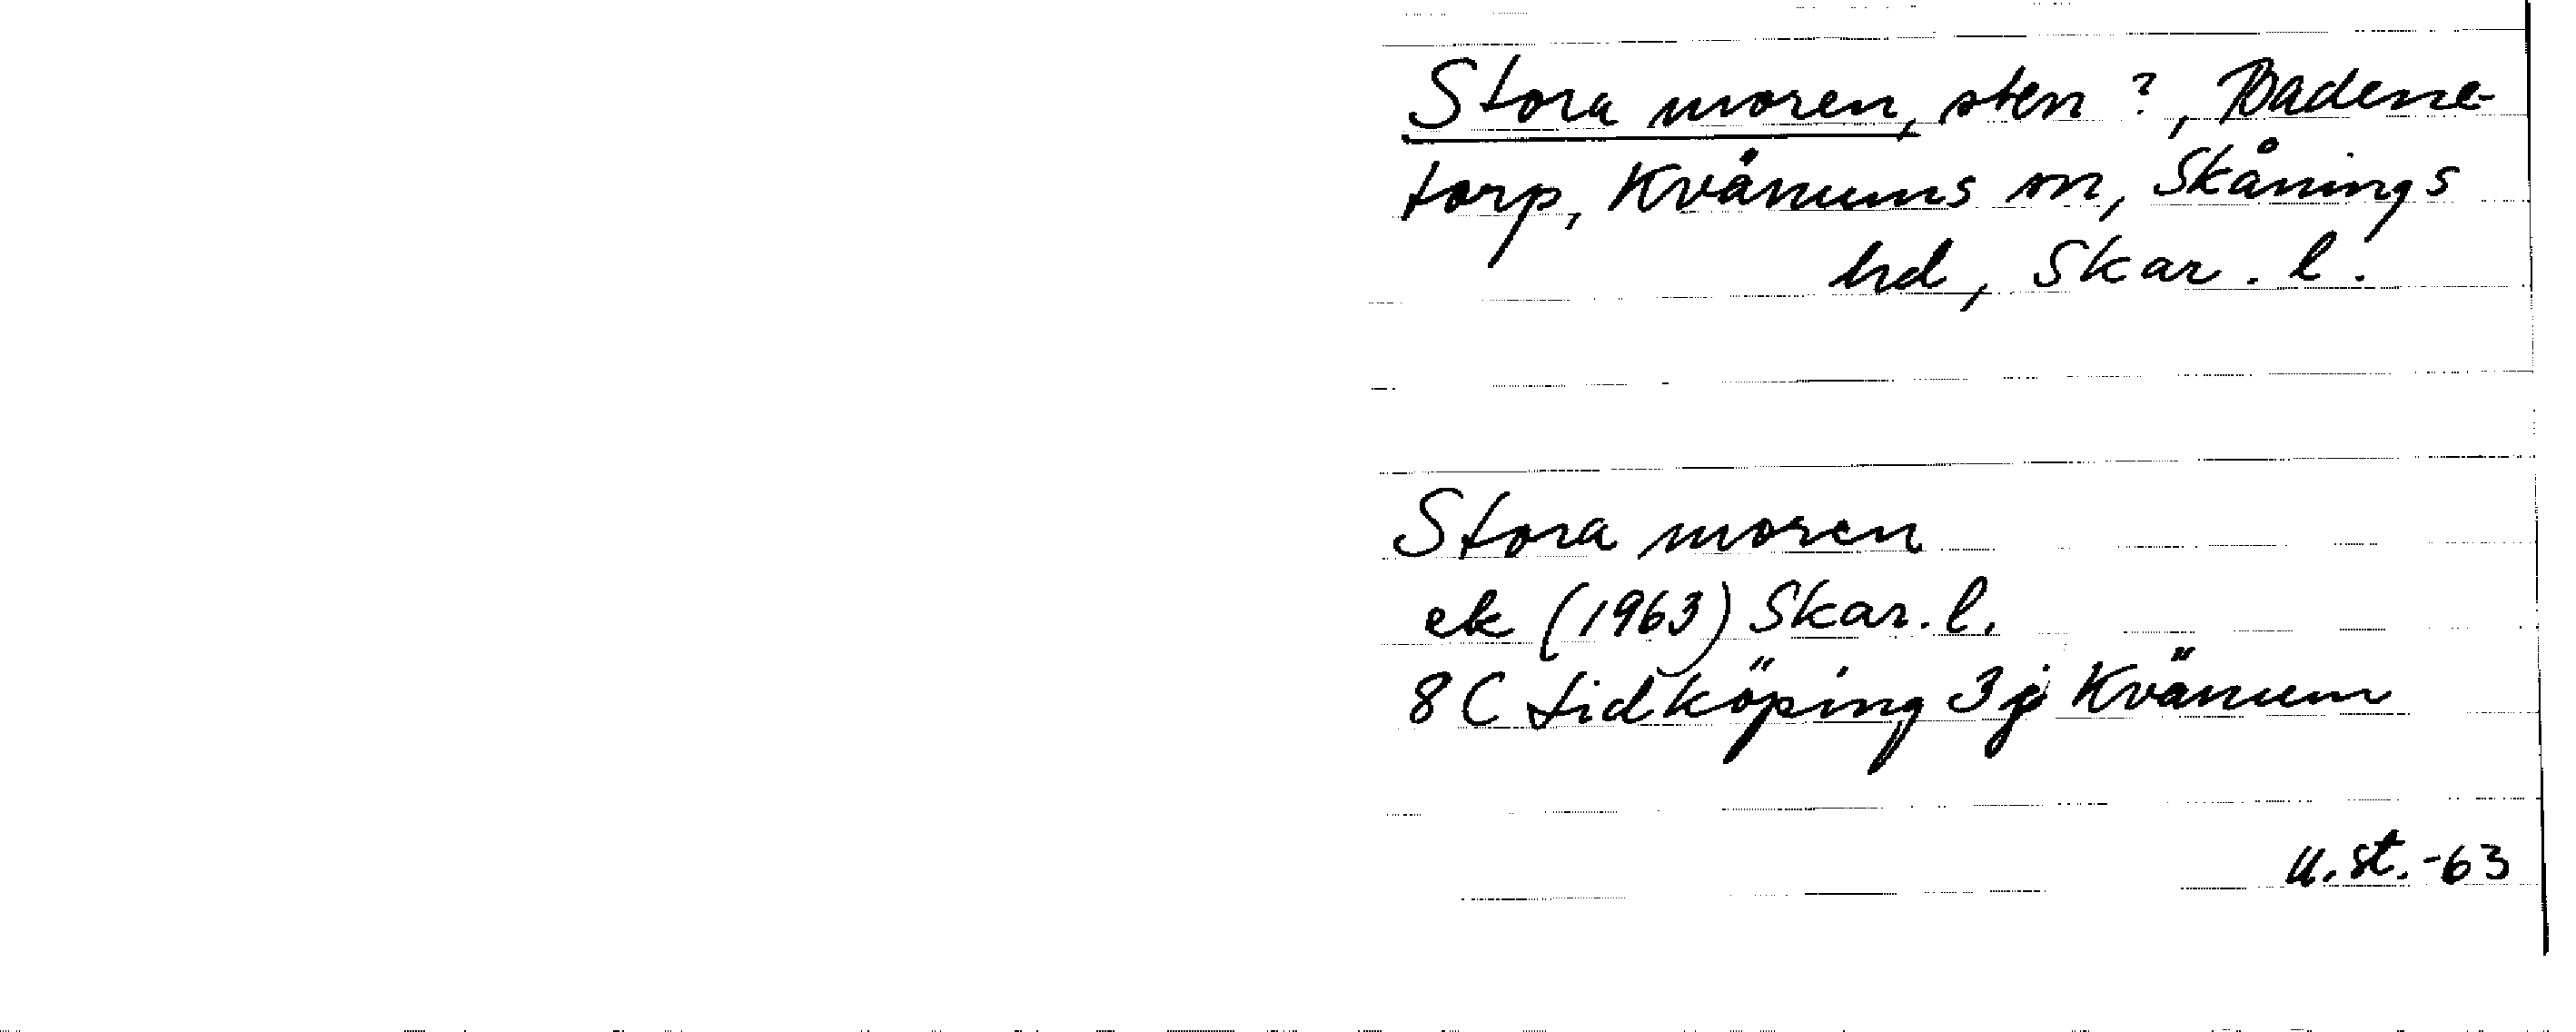 Stora moren, sten ?, Badene-
torp, Kvänums sn, Skånings
hd, Skar. l.
Stora moren
ek (1963) Skar. l.
8 C Lidköping 3 j Kvänum
u. st. -63